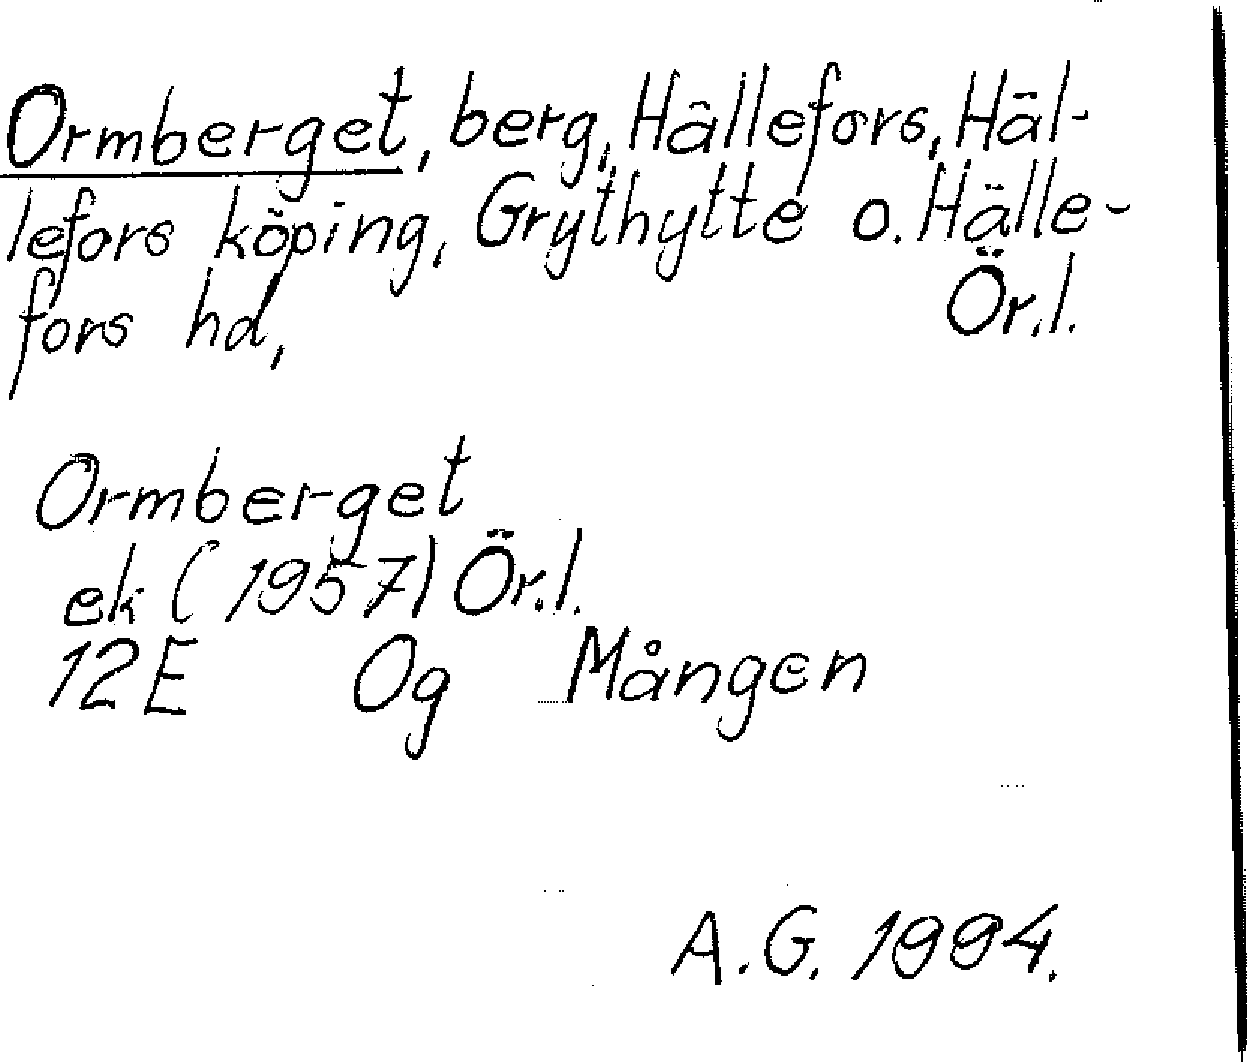 Ormberget, berg, Hällefors, Häl-
lefors köping, Grythytte o. Hälle-
fors hd, Ör.l.
Ormberget
ek (1957) Ör.l.
12E Og Mången
A.G. 1994.